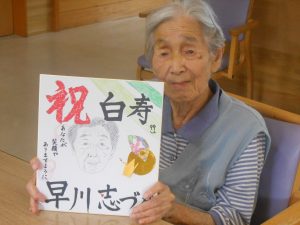 祝 白寿
あなたが
笑顔で
ありますように、
早川 志づ